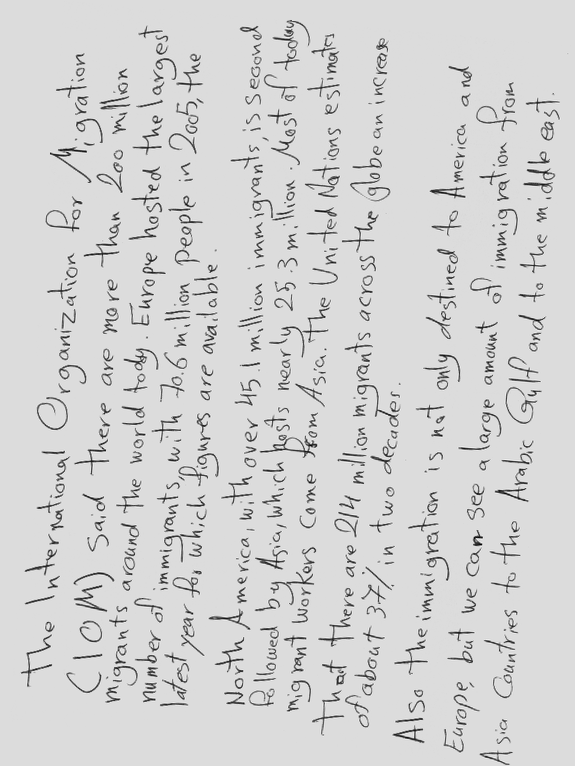 The International Organization for Migration
(IOM) Said there are more than 200 million
migrants around the world tody. Europe hosted the largest
number of immigrants, with 70.6 million people in 2005, the
latest year for which figures are available.
North America, with over 45.1 million immigrants, is second
followed by Asia, which hosts nearly 25.3 million. Most of today
migrant workers come from Asia. the United Nations estimates
That there are 214 million migrants across the globe an increase
of about 37% in two decades.
Also the immigration is not only destined to America and
Europe, but we can see a large amount of immigration from
Asia Countries to the Arabic Gulf and to the middle east.